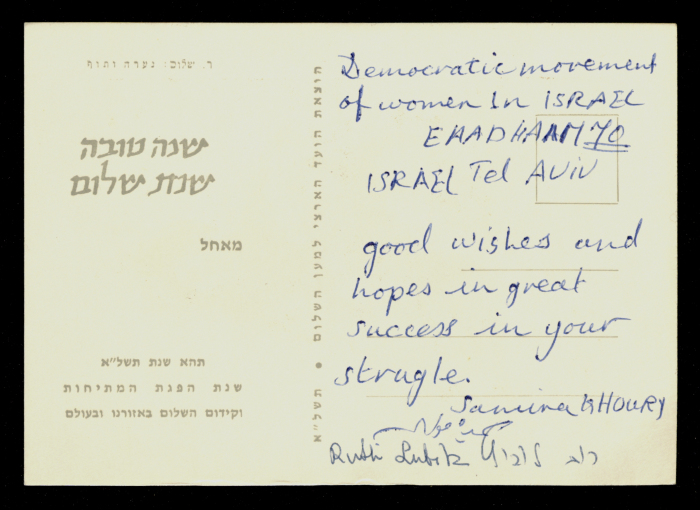 ר. שלום: נערה ותוף
שנה טובה
שנת שלום
מאחל
תהא שנת תשל"א
שנת הפגת המתיחות
וקידום השלום באזורנו ובעולם
הוצאת הועד הארצי למען השלום • תשל"א
Democratic movement
of women in ISRAEL
EHADHAAM 70
ISRAEL Tel AVIV
good wishes and
hopes in great
success in your
strugle.
Samira KHOURY
Ruth Lubitz לוביץ רות